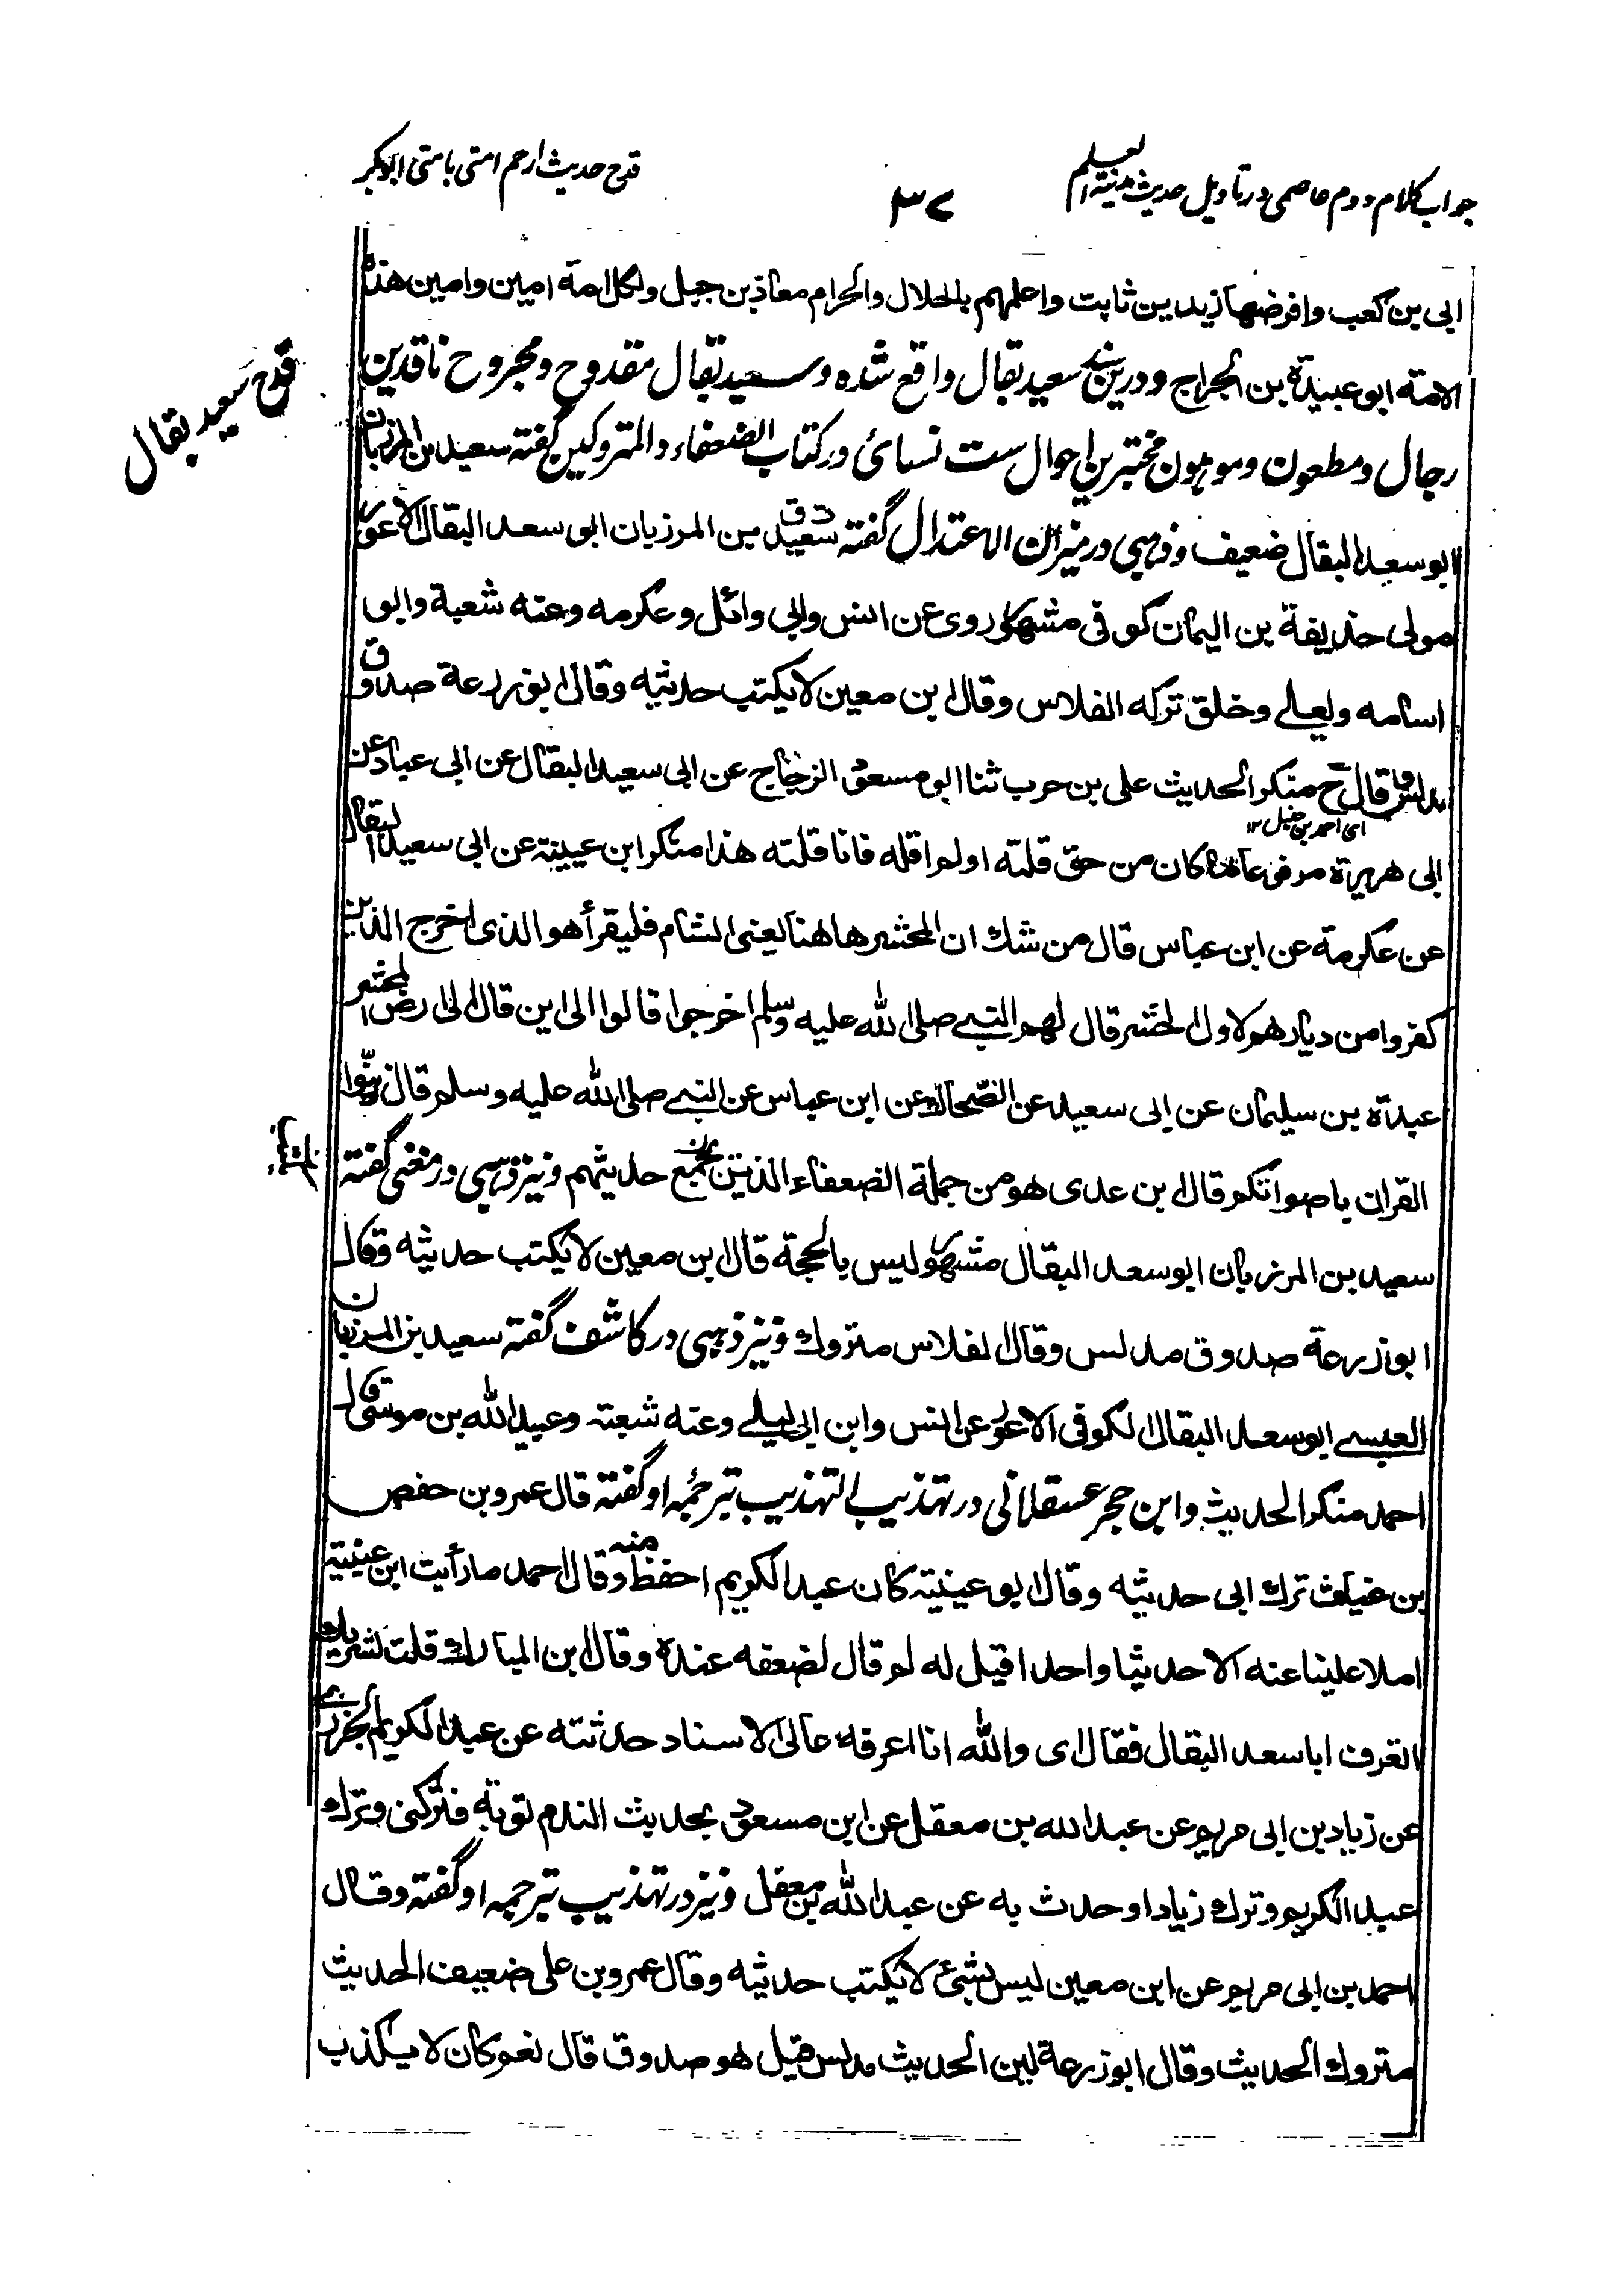 جواب کلام دوم عاصمی در تاویل حدیث مدینة العلم
۳۷
قدح حدیث ارحم امتی بامتی ابوبکر
ابی بن کعب وافرضها زید بن ثابت واعلمهم بالحلال والحرام معاذ بن جبل ولکل امة امین وامین هذه
الامة ابو عبیدة بن الجراح ودرین سند سعید بقال واقع شده وسعید بقال مقدوح ومجروح ناقدین
قدح سعید بقال
رجال ومطعون وموهون مختبرین احوال ست نسائی در کتاب الضعفاء والمتروکین گفته سعید بن المرزبان
ابو سعد البقال ضعیف وذهبی در میزان الاعتدال گفته سعید ت ق بن المرزبان ابو سعد البقال الاعور
مولی حذیفة بن الیمان کوفی مشهور روی عن انس وابی وائل وعکرمه وعنه شعبة وابو
اسامه ویعلے وخلق ترکه الفلاس وقال ابن معین لا یکتب حدیثه وقال ابو زرعة صدوق
مدلس وقال ح منکر الحدیث علی بن حرب ثنا ابو مسعود الزجاج عن ابی سعید البقال عن ابی عباد عن
ای احمد بن حنبل ۱۲
ابی هریرة مرفوعا ما کان من حق قلته او لم اقله فانا قلته هذا منکر ابن عیینة عن ابی سعید البقال
عن عکرمة عن ابن عباس قال من شك ان المحشر هاهنا یعنی الشام فلیقرأ هو الذی اخرج الذین
کفروا من دیارهم لاول الحشر قال لهم النبے صلی الله علیه وسلم اخرجوا قالوا الی این قال الی ارض المحشر
عبدة بن سلیمان عن ابی سعید عن الضحاك عن ابن عباس عن النبے صلی الله علیه وسلم قال زینوا
القران باصواتکم قال ابن عدی هو من جملة الضعفاء الذین یجمع حدیثهم ونیز ذهبی در مغنی گفته
سعید بن المرزبان ابو سعد البقال مشهور لیس بالحجة قال ابن معین لا یکتب حدیثه وقال
ابو زرعة صدوق مدلس وقال الفلاس متروك ونیز ذهبی در کاشف گفته سعید بن المرزبان
العبسے ابو سعد البقال الکوفی الاعور عن انس وابن ابی لیلے وعنه شعبة وعبید الله بن موسی قال
احمد منکر الحدیث وابن حجر عسقلانی در تهذیب التهذیب بترجمۂ او گفته قال عمرو بن حفص
بن غیاث ترك ابی حدیثه وقال ابو عیینة کان عبد الکریم احفظ منه وقال احمد ما رأیت ابن عیینة
املا علینا عنه الا حدیثا واحدا قیل له لم قال لضعفه عنده وقال ابن المبارك قلت لشریك
اتعرف ابا سعد البقال فقال ای والله انا اعرفه عالی الاسناد حدثته عن عبد الکریم الجزری
عن زیاد بن ابی مریم عن عبد الله بن معقل عن ابن مسعود بحدیث الندم توبة فترکنی وترك
عبد الکریم وترك زیادا وحدث به عن عبد الله بن معقل ونیز در تهذیب بترجمه او گفته وقال
احمد بن ابی مریم عن ابن معین لیس بشئ لا یکتب حدیثه وقال عمرو بن علی ضعیف الحدیث
متروك الحدیث وقال ابو زرعة لین الحدیث مدلس قیل هو صدوق قال نعم کان لا یکذب